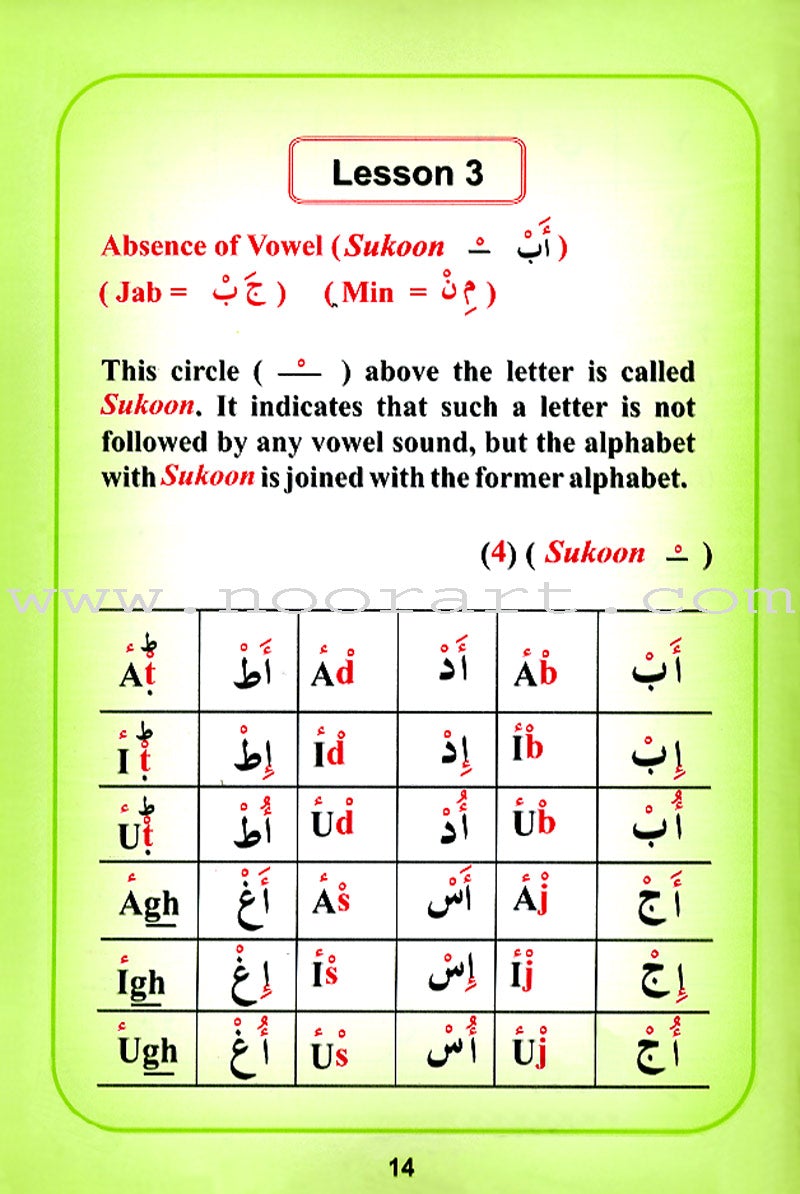 Lesson 3
Absence of Vowel (Sukoon ـْ أَبْ)
( Jab = جَ بْ ) ( Min = مِ نْ )
This circle ( ـْ ) above the letter is called
Sukoon. It indicates that such a letter is not
followed by any vowel sound, but the alphabet
with Sukoon is joined with the former alphabet.
(4) ( Sukoon ـْ )
www.noorart.com
Aṭ أَطْ Ad أَدْ Ab أَبْ
Iṭ إِطْ Id إِدْ Ib إِبْ
Uṭ أُطْ Ud أُدْ Ub أُبْ
Agh أَغْ As أَسْ Aj أَجْ
Igh إِغْ Is إِسْ Ij إِجْ
Ugh أُغْ Us أُسْ Uj أُجْ
14